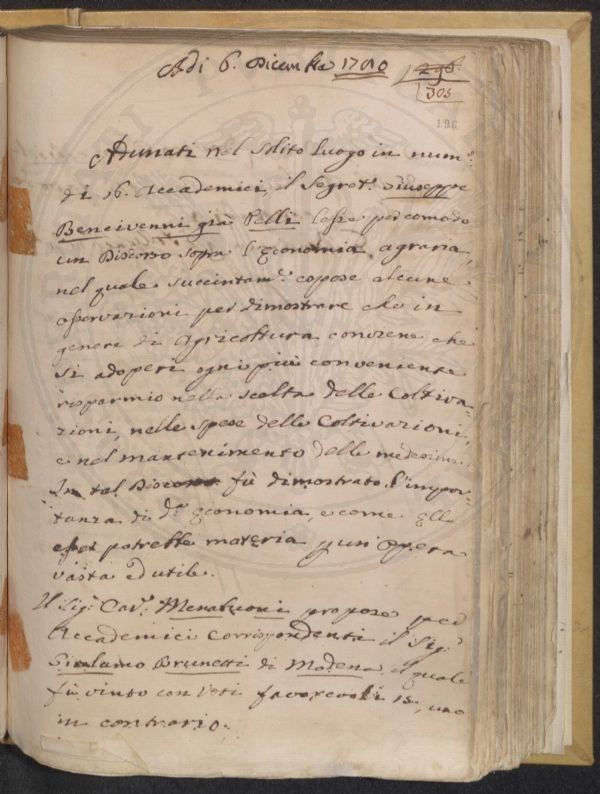 Adi 6. Dicembre 1780
296.
305
196
Adunati nel Solito Luogo in num.o
di 16. Accademici, il Segret.o Giuseppe
Bencivenni già Pelli lesse per comodo
un Discorso sopra l'Economia agraria,
nel quale succintam.e espose alcune
osservazioni per dimostrare che in
genere di Agricoltura conviene che
si adoperi ogni più conveniente
risparmio nella scelta delle Coltiva=
zioni, nelle spese delle Coltivazioni,
e nel mantenimento delle medesime.
In tal Discorso fù dimostrato l'impor=
tanza di d.a Economia, e come Ella
potrebbe materia p un'Opera
vasta ed utile.
Il Sig.r Cav.r Menabuoni propose per
Accademici Corrispondenti il Sig.r
Girolamo Brunetti di Modena, il quale
fù vinto con Voti favorevoli 15, uno
in contrario.